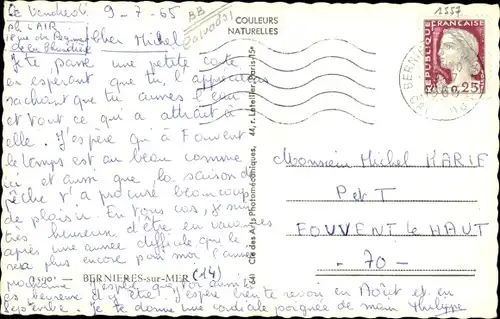 Le Vendredi 9-7-65
Cher Michel
Je te passe une petite carte
en espérant que tu l'apprécies
sachant que tu aimes l'eau
et tout ce qui a attrait à
elle. J'espère qu'à Fouvent
le temps est au beau comme
ici et aussi que la saison de
pêche t'a procuré beaucoup
de plaisir. En tous cas, je suis
très heureux d'être en vacances
après une année difficile qui le
sera plus encore pour moi l'année
prochaine. J'espère que
es heureux et J'espère être revoir en Août et en
septembre. Je te donne une cordiale poignée de main Philippe
BB
Calvados
COULEURS
NATURELLES
1557
RÉPUBLIQUE FRANÇAISE
0.25F
BERNIÈRES
641 Cie des Arts Photomécaniques, 44, r. Letellier, Paris-15e
Monsieur Michel MARIE
P et T
FOUVENT LE HAUT
- 70 -
BERNIERES-sur-MER (14)